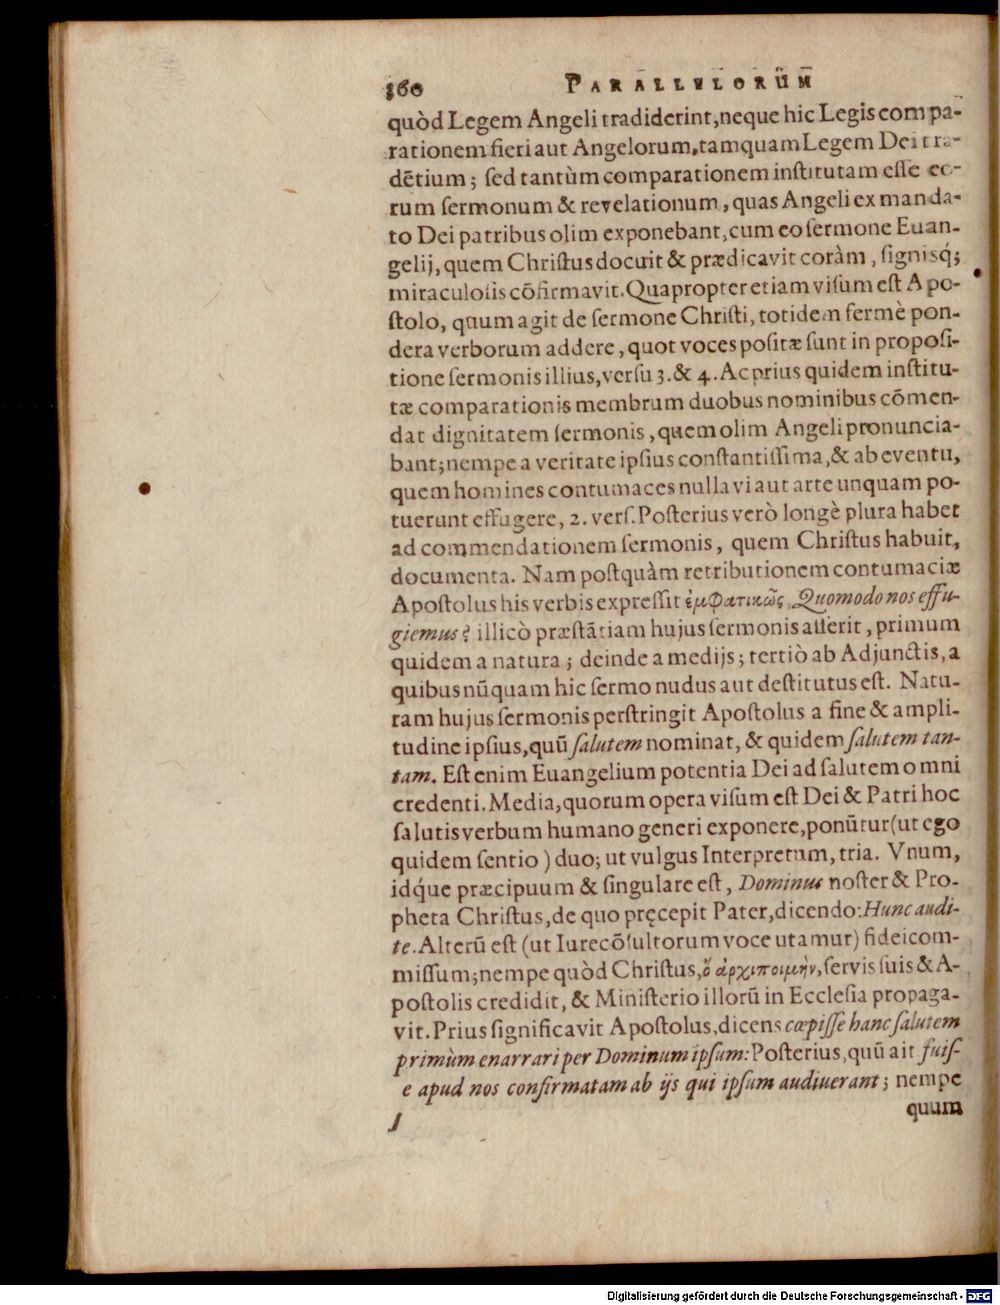 360 PARALLELORŪM
quòd Legem Angeli tradiderint, neque hic Legis compa-
rationem fieri aut Angelorum, tamquam Legem Dei tra-
dētium; sed tantùm comparationem institutam esse eo-
rum sermonum & revelationum, quas Angeli ex manda-
to Dei patribus olim exponebant, cum eo sermone Euan-
gelij, quem Christus docuit & prædicavit coràm, signisq́;
miraculosis cōfirmavit. Quapropter etiam visum est Apo-
stolo, quum agit de sermone Christi, totidem fermè pon-
dera verborum addere, quot voces positæ sunt in proposi-
tione sermonis illius, versu 3. & 4. Ac prius quidem institu-
tæ comparationis membrum duobus nominibus cōmen-
dat dignitatem sermonis, quem olim Angeli pronuncia-
bant; nempe a veritate ipsius constantissima, & ab eventu,
quem homines contumaces nulla vi aut arte unquam po-
tuerunt effugere, 2. vers. Posterius verò longè plura habet
ad commendationem sermonis, quem Christus habuit,
documenta. Nam postquàm retributionem contumaciæ
Apostolus his verbis expressit ἐμφατικῶς, Quomodo nos effu-
giemus? illicò præstātiam hujus sermonis asserit, primum
quidem a natura; deinde a medijs; tertiò ab Adjunctis, a
quibus nūquam hic sermo nudus aut destitutus est. Natu-
ram hujus sermonis perstringit Apostolus a fine & ampli-
tudine ipsius, quū salutem nominat, & quidem salutem tan-
tam. Est enim Euangelium potentia Dei ad salutem omni
credenti. Media, quorum opera visum est Dei & Patri hoc
salutis verbum humano generi exponere, ponūtur (ut ego
quidem sentio) duo; ut vulgus Interpretum, tria. Vnum,
idq́ue præcipuum & singulare est, Dominus noster & Pro-
pheta Christus, de quo pręcepit Pater, dicendo: Hunc audi-
te. Alterū est (ut Iurecōsultorum voce utamur) fideicom-
missum; nempe quòd Christus, ὅ ἀρχιποιμὴν, servis suis & A-
postolis credidit, & Ministerio illorū in Ecclesia propaga-
vit. Prius significavit Apostolus, dicens cœpisse hanc salutem
primùm enarrari per Dominum ipsum: Posterius, quū ait fuis-
e apud nos confirmatam ab ijs qui ipsum audiuerant; nempe
quum
ſ
Digitalisierung gefördert durch die Deutsche Forschungsgemeinschaft - DFG